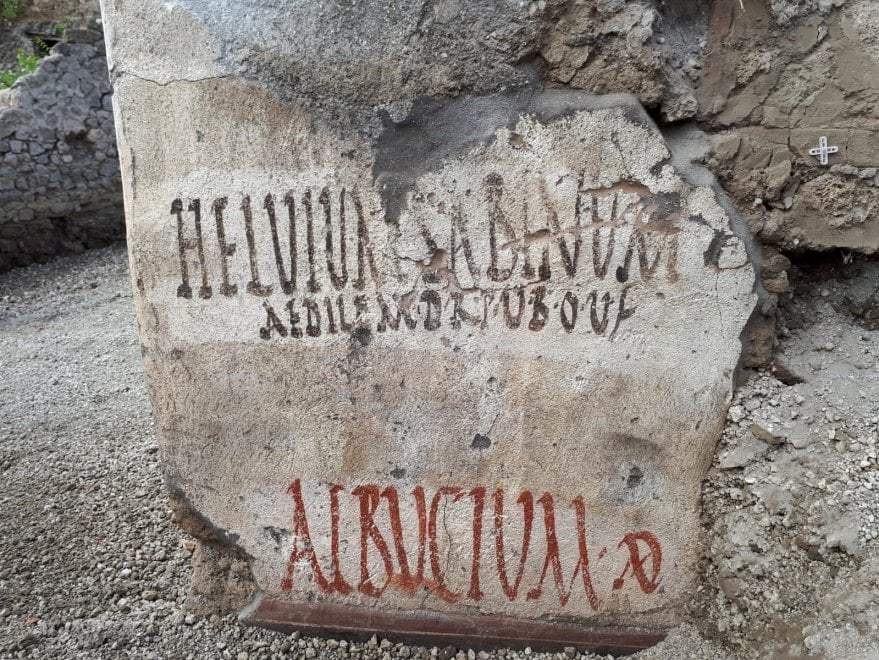 HELVIUM SABINUM
AEDILEM·D·R·P·V·B·O·V·F
ALBUCIUM·AED